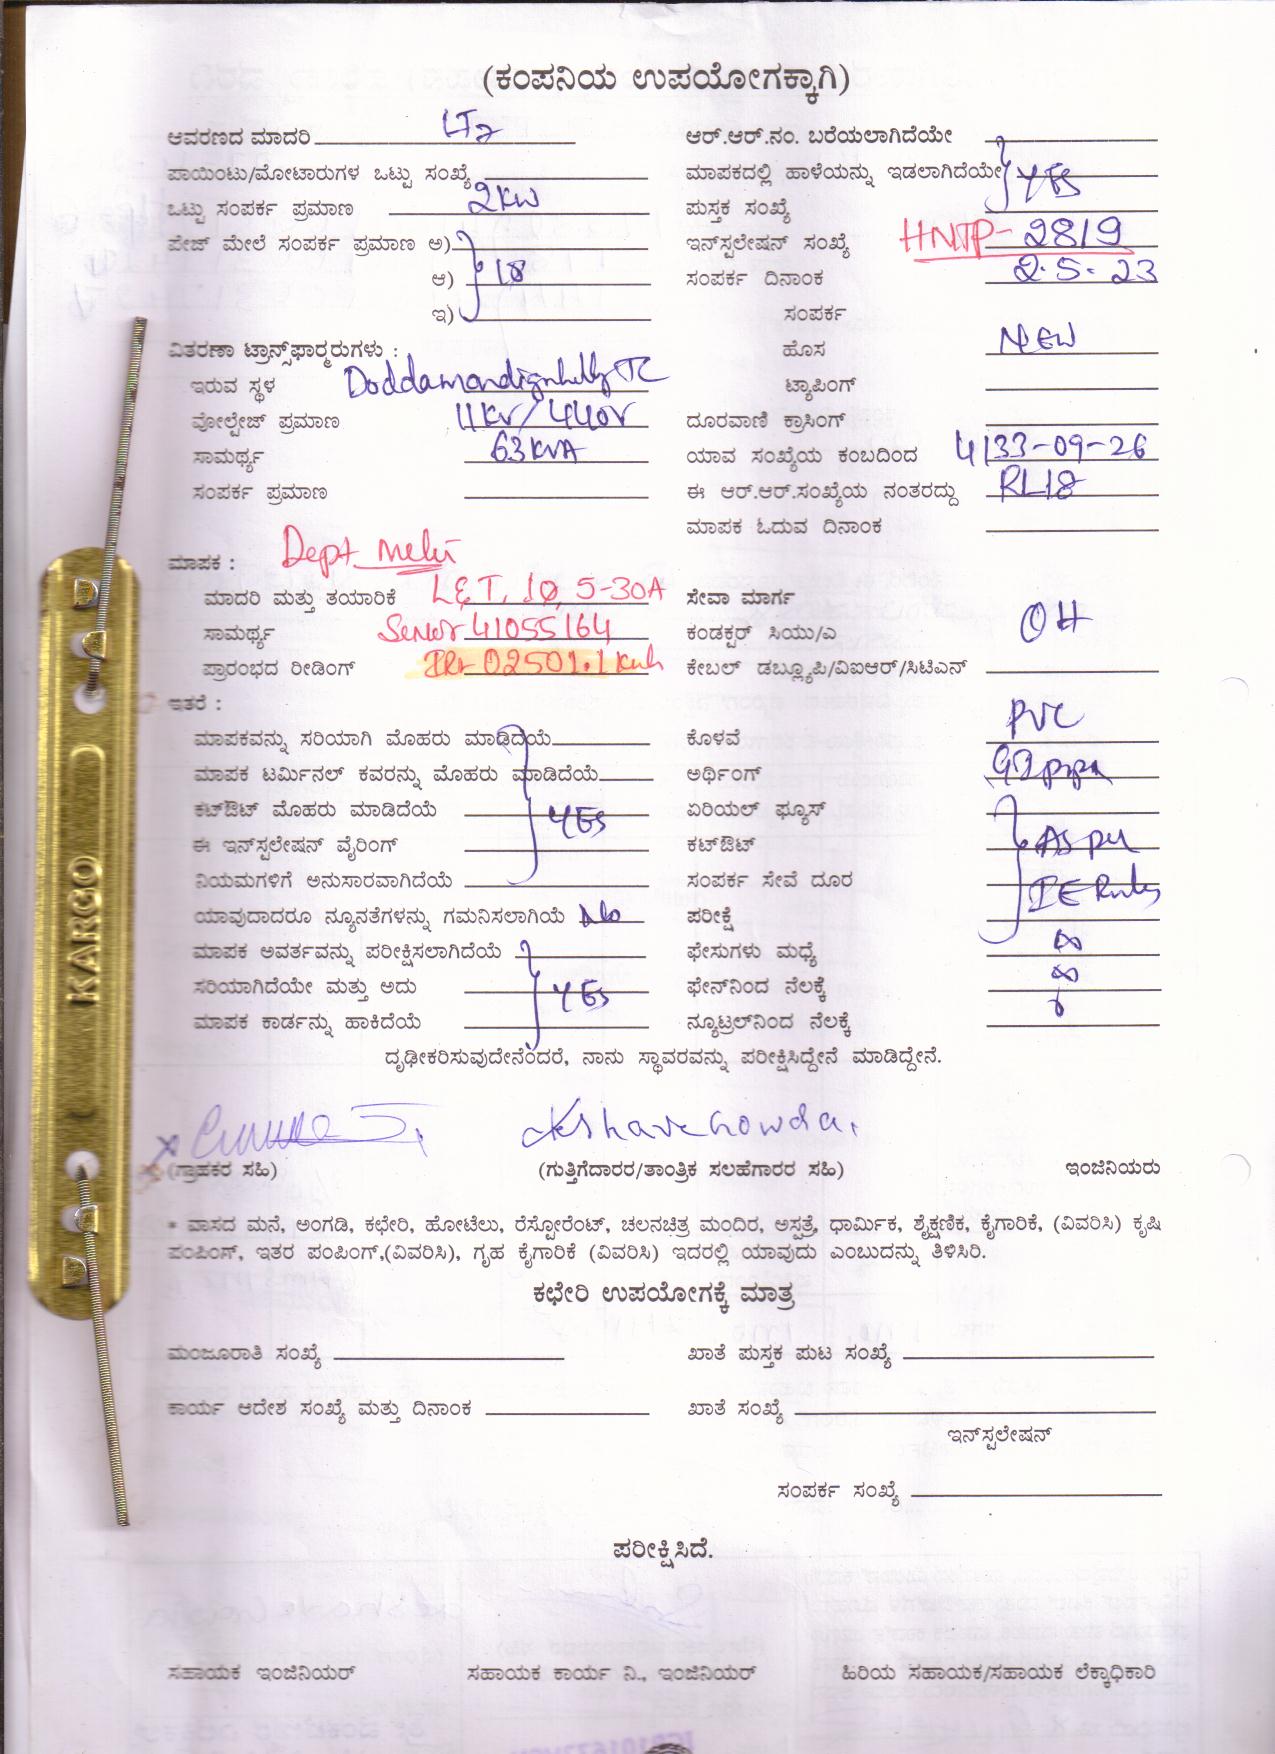 (ಕಂಪನಿಯ ಉಪಯೋಗಕ್ಕಾಗಿ)
ಆವರಣದ ಮಾದರಿ LT2 ಆರ್.ಆರ್.ನಂ. ಬರೆಯಲಾಗಿದೆಯೇ
ಪಾಯಿಂಟು/ಮೋಟಾರುಗಳ ಒಟ್ಟು ಸಂಖ್ಯೆ ಮಾಪಕದಲ್ಲಿ ಹಾಳೆಯನ್ನು ಇಡಲಾಗಿದೆಯೇ YES
ಒಟ್ಟು ಸಂಪರ್ಕ ಪ್ರಮಾಣ 2KW ಪುಸ್ತಕ ಸಂಖ್ಯೆ
ಪೇಜ್ ಮೇಲೆ ಸಂಪರ್ಕ ಪ್ರಮಾಣ ಅ) ಇನ್‌ಸ್ಟಲೇಷನ್ ಸಂಖ್ಯೆ HNTP-2819
ಆ) 1Ø ಸಂಪರ್ಕ ದಿನಾಂಕ 2.5.23
ಇ) ಸಂಪರ್ಕ
ವಿತರಣಾ ಟ್ರಾನ್ಸ್‌ಫಾರ್ಮರುಗಳು : ಹೊಸ NEW
ಇರುವ ಸ್ಥಳ TC ಟ್ಯಾಪಿಂಗ್
ವೋಲ್ಟೇಜ್ ಪ್ರಮಾಣ 11KV/440V ದೂರವಾಣಿ ಕ್ರಾಸಿಂಗ್
ಸಾಮರ್ಥ್ಯ 63KVA ಯಾವ ಸಂಖ್ಯೆಯ ಕಂಬದಿಂದ 4133-09-26
ಸಂಪರ್ಕ ಪ್ರಮಾಣ ಈ ಆರ್.ಆರ್.ಸಂಖ್ಯೆಯ ನಂತರದ್ದು RL18
ಮಾಪಕ ಓದುವ ದಿನಾಂಕ
ಮಾಪಕ : Dept Meter
ಮಾದರಿ ಮತ್ತು ತಯಾರಿಕೆ L&T, 1Ø, 5-30A ಸೇವಾ ಮಾರ್ಗ
ಸಾಮರ್ಥ್ಯ 41055164 ಕಂಡಕ್ಟರ್ ಸಿಯು/ಎ OH
ಪ್ರಾರಂಭದ ರೀಡಿಂಗ್ IR- 02501.1 Kwh ಕೇಬಲ್ ಡಬ್ಲ್ಯೂಪಿ/ವಿಐಆರ್/ಸಿಟಿಎನ್
ಇತರೆ :
ಮಾಪಕವನ್ನು ಸರಿಯಾಗಿ ಮೊಹರು ಮಾಡಿದೆಯೆ ಕೊಳವೆ PVC
ಮಾಪಕ ಟರ್ಮಿನಲ್ ಕವರನ್ನು ಮೊಹರು ಮಾಡಿದೆಯೆ ಅರ್ಥಿಂಗ್ GI pipe
ಕಟ್‌ಔಟ್ ಮೊಹರು ಮಾಡಿದೆಯೆ YES ಏರಿಯಲ್ ಫ್ಯೂಸ್
ಈ ಇನ್‌ಸ್ಟಲೇಷನ್ ವೈರಿಂಗ್ ಕಟ್‌ಔಟ್ AS per
ನಿಯಮಗಳಿಗೆ ಅನುಸಾರವಾಗಿದೆಯೆ ಸಂಪರ್ಕ ಸೇವೆ ದೂರ IE Rules
ಯಾವುದಾದರೂ ನ್ಯೂನತೆಗಳನ್ನು ಗಮನಿಸಲಾಗಿಯೆ No ಪರೀಕ್ಷೆ
ಮಾಪಕ ಅವರ್ತವನ್ನು ಪರೀಕ್ಷಿಸಲಾಗಿದೆಯೆ ಫೇಸುಗಳು ಮಧ್ಯೆ ∞
ಸರಿಯಾಗಿದೆಯೇ ಮತ್ತು ಅದು YES ಫೇನ್‌ನಿಂದ ನೆಲಕ್ಕೆ ∞
ಮಾಪಕ ಕಾರ್ಡನ್ನು ಹಾಕಿದೆಯೆ ನ್ಯೂಟ್ರಲ್‌ನಿಂದ ನೆಲಕ್ಕೆ
ದೃಢೀಕರಿಸುವುದೇನೆಂದರೆ, ನಾನು ಸ್ಥಾವರವನ್ನು ಪರೀಕ್ಷಿಸಿದ್ದೇನೆ ಮಾಡಿದ್ದೇನೆ.
(ಗ್ರಾಹಕರ ಸಹಿ) (ಗುತ್ತಿಗೆದಾರರ/ತಾಂತ್ರಿಕ ಸಲಹೆಗಾರರ ಸಹಿ) ಇಂಜಿನಿಯರು
* ವಾಸದ ಮನೆ, ಅಂಗಡಿ, ಕಛೇರಿ, ಹೋಟೆಲು, ರೆಸ್ಟೋರೆಂಟ್, ಚಲನಚಿತ್ರ ಮಂದಿರ, ಅಸ್ಪತ್ರೆ, ಧಾರ್ಮಿಕ, ಶೈಕ್ಷಣಿಕ, ಕೈಗಾರಿಕೆ, (ವಿವರಿಸಿ) ಕೃಷಿ
ಪಂಪಿಂಗ್, ಇತರ ಪಂಪಿಂಗ್,(ವಿವರಿಸಿ), ಗೃಹ ಕೈಗಾರಿಕೆ (ವಿವರಿಸಿ) ಇದರಲ್ಲಿ ಯಾವುದು ಎಂಬುದನ್ನು ತಿಳಿಸಿರಿ.
ಕಛೇರಿ ಉಪಯೋಗಕ್ಕೆ ಮಾತ್ರ
ಮಂಜೂರಾತಿ ಸಂಖ್ಯೆ ಖಾತೆ ಪುಸ್ತಕ ಪುಟ ಸಂಖ್ಯೆ
ಕಾರ್ಯ ಆದೇಶ ಸಂಖ್ಯೆ ಮತ್ತು ದಿನಾಂಕ ಖಾತೆ ಸಂಖ್ಯೆ
ಇನ್‌ಸ್ಟಲೇಷನ್
ಸಂಪರ್ಕ ಸಂಖ್ಯೆ
ಪರೀಕ್ಷಿಸಿದೆ.
ಸಹಾಯಕ ಇಂಜಿನಿಯರ್ ಸಹಾಯಕ ಕಾರ್ಯ ನಿ., ಇಂಜಿನಿಯರ್ ಹಿರಿಯ ಸಹಾಯಕ/ಸಹಾಯಕ ಲೆಕ್ಕಾಧಿಕಾರಿ
KARGO